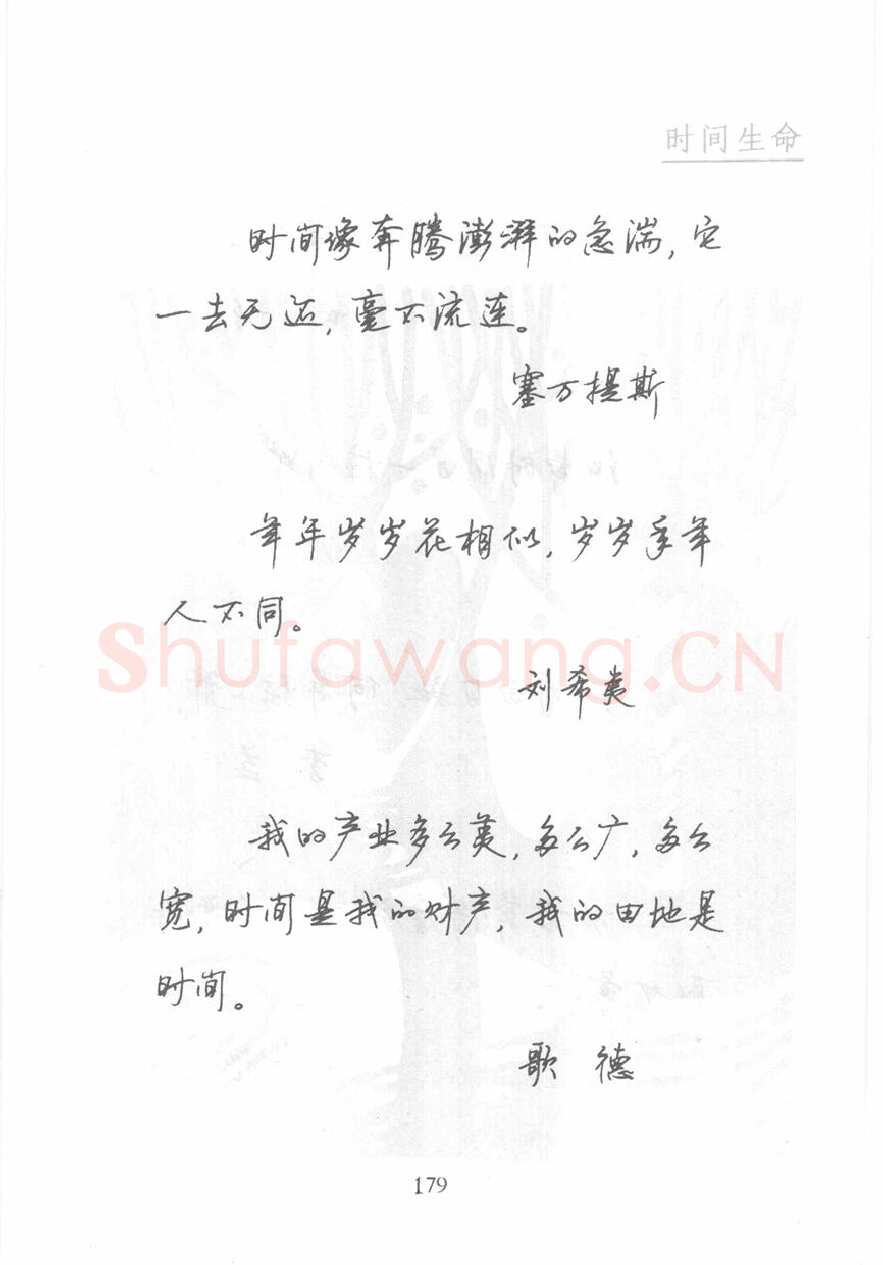 时间生命
时间像奔腾澎湃的急湍,它
一去无返,毫不流连。
塞万提斯
年年岁岁花相似,岁岁年年
人不同。
Shufawang.CN
刘希夷
我的产业多么美,多么广,多么
宽,时间是我的财产,我的田地是
时间。
歌 德
179